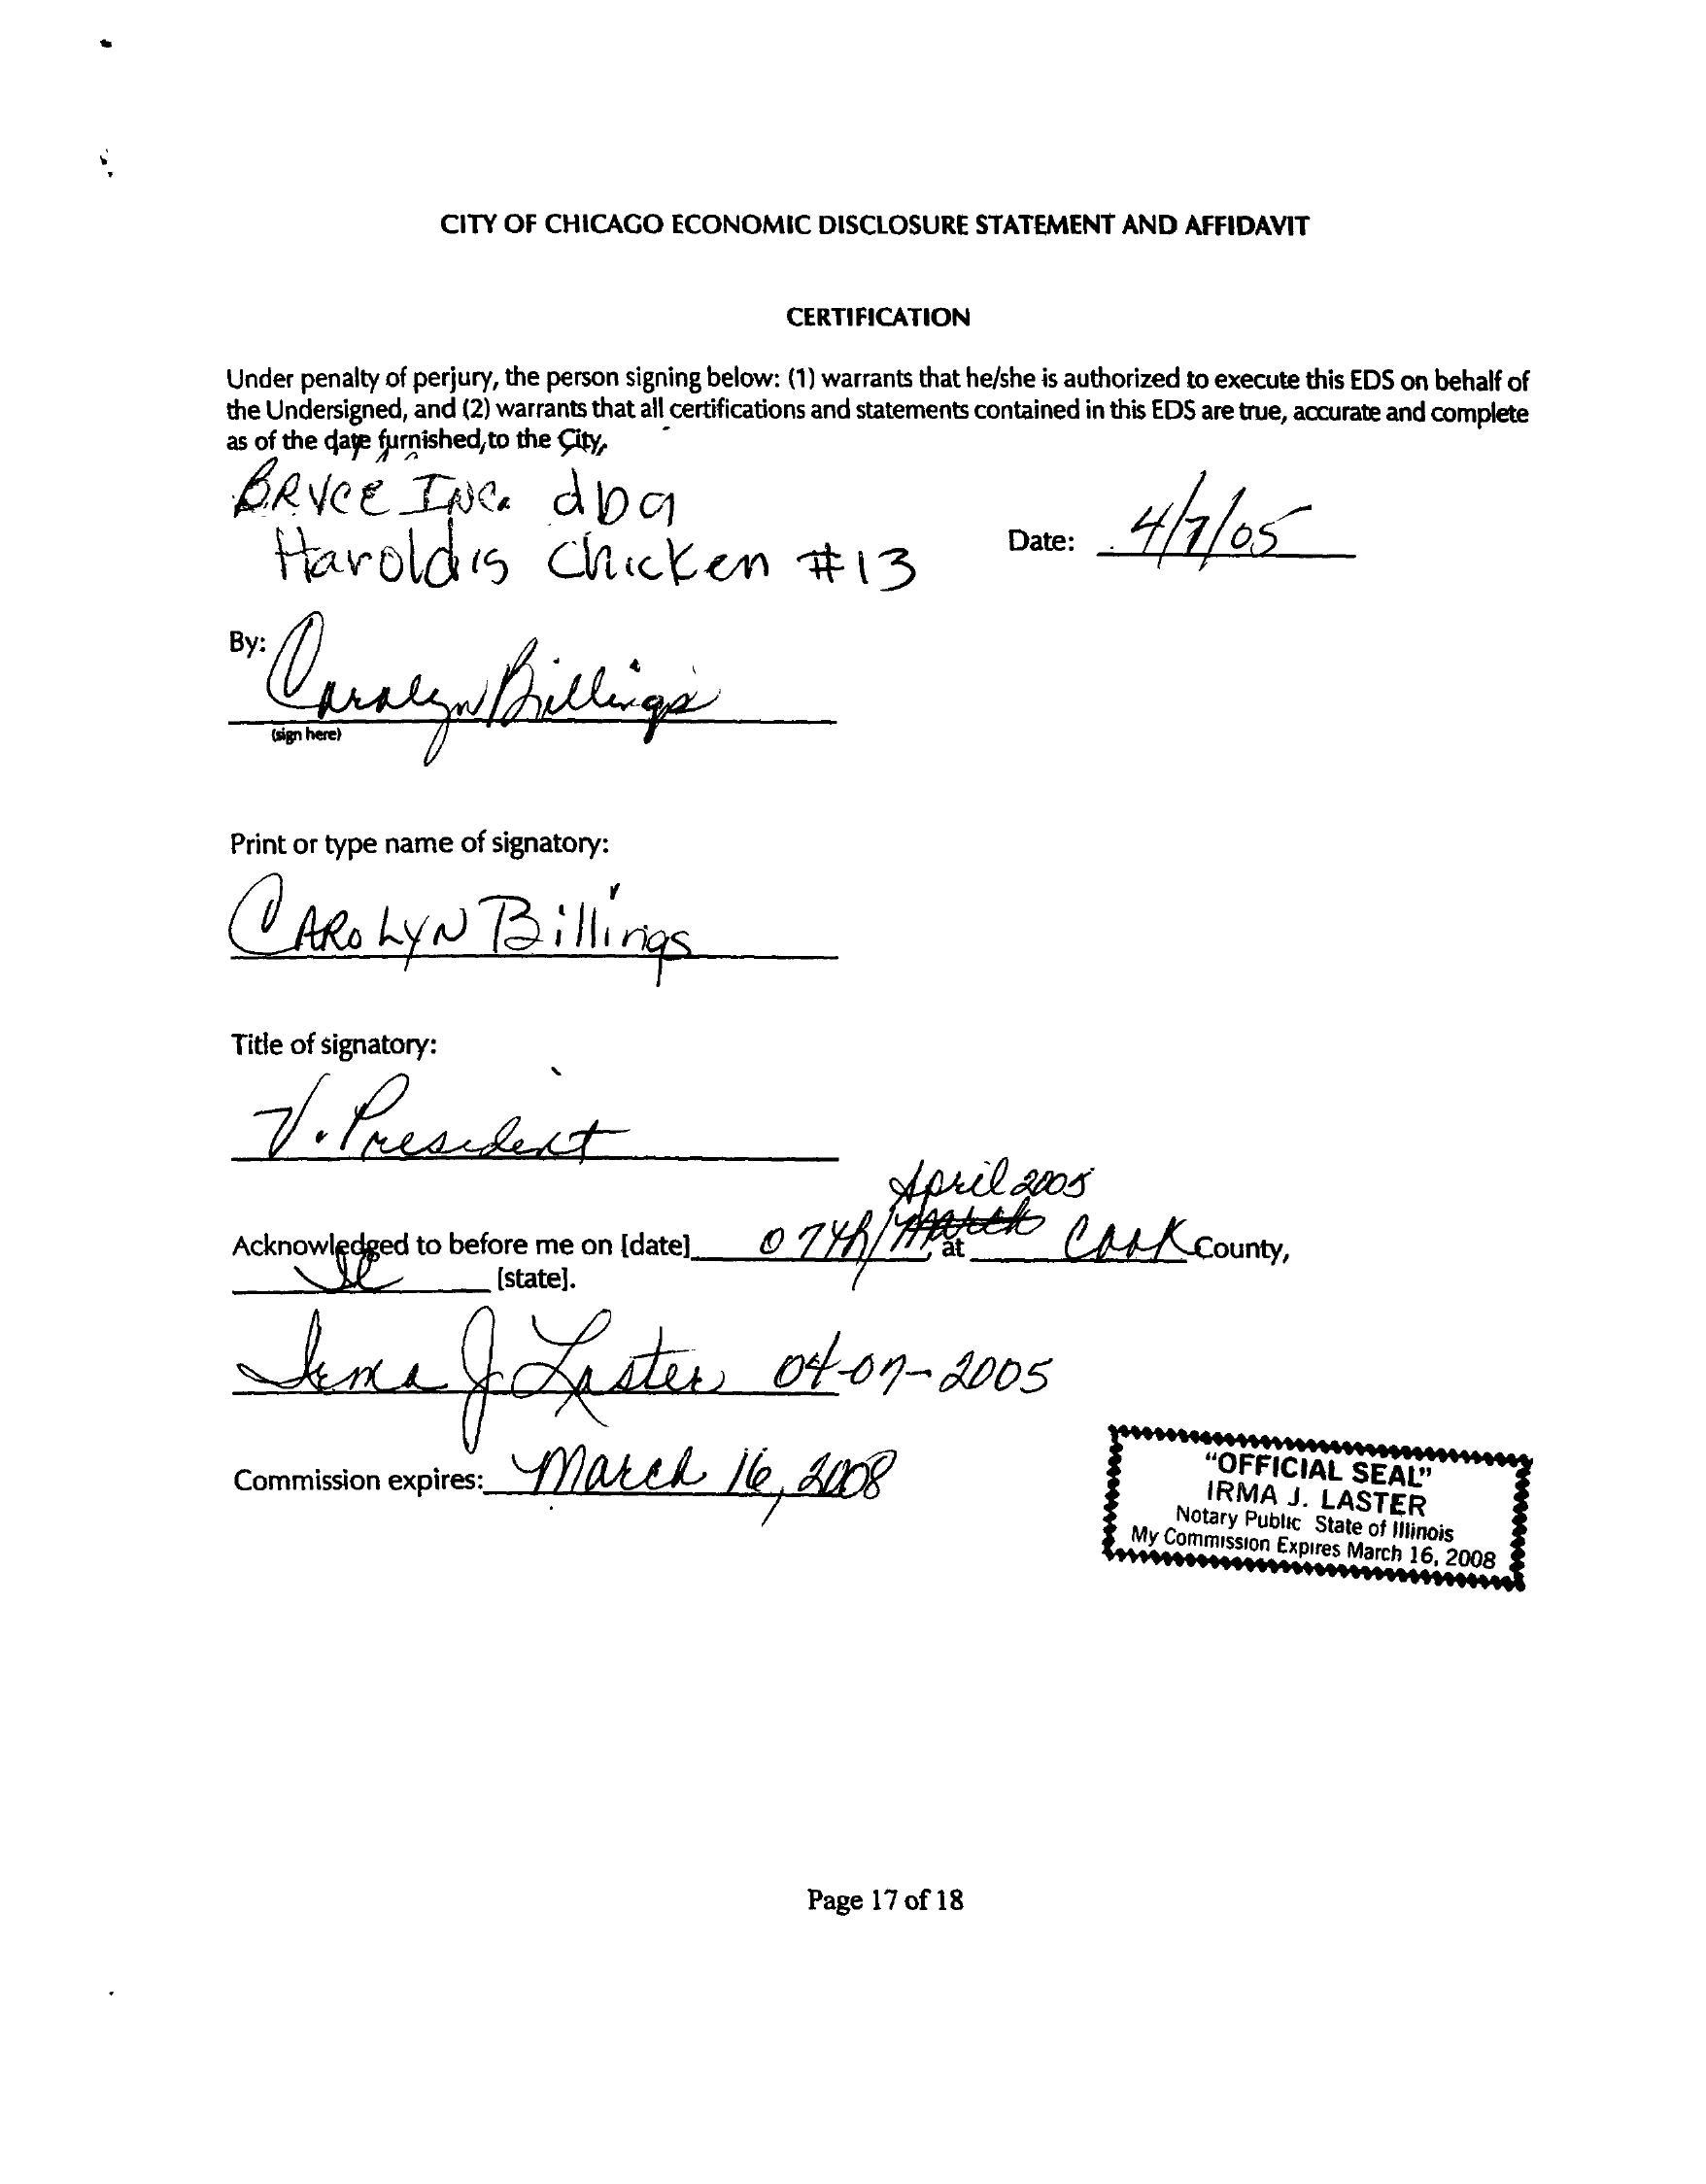 CITY OF CHICAGO ECONOMIC DISCLOSURE STATEMENT AND AFFIDAVIT
CERTIFICATION
Under penalty of perjury, the person signing below: (1) warrants that he/she is authorized to execute this EDS on behalf of
the Undersigned, and (2) warrants that all certifications and statements contained in this EDS are true, accurate and complete
as of the date furnished to the City.
BRYCE INC. dba
Harold's Chicken #13
Date: 4/7/05
By: Carolyn Billings
(sign here)
Print or type name of signatory:
CAROLYN Billings
Title of signatory:
V. President
April 2005
Acknowledged to before me on [date] 07th/March, at Cook County,
Il [state].
Irma J Laster 04-07-2005
Commission expires: March 16, 2008
"OFFICIAL SEAL"
IRMA J. LASTER
Notary Public State of Illinois
My Commission Expires March 16, 2008
Page 17 of 18